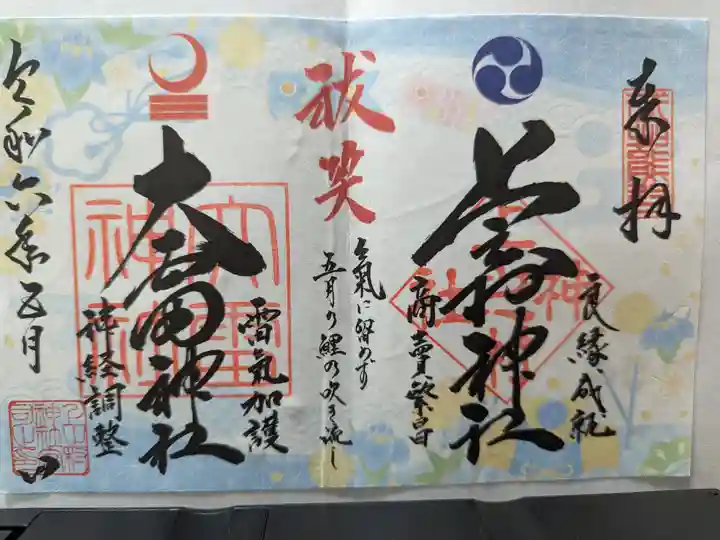 奉拝
良縁成就
上之村神社
商売繁昌
祓笑
五月の鯉の吹き流し
雷氣加護
大雷神社
神経調整
令和六年五月